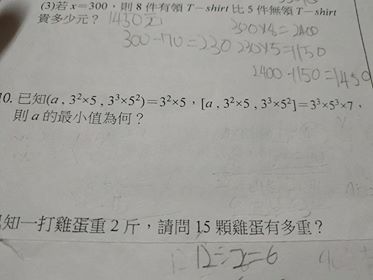 (3)若 x=300,則 8 件有領 T-shirt 比 5 件無領 T-shirt
貴多少元? 1450元
300×8=2400
300-70=230 230×5=1150
2400-1150=1450
10. 已知(a , 3²×5 , 3³×5²)=3²×5,[a , 3²×5 , 3³×5²]=3³×5³×7,
則 a 的最小值為何?
知一打雞蛋重 2 斤,請問 15 顆雞蛋有多重?
12÷2=6